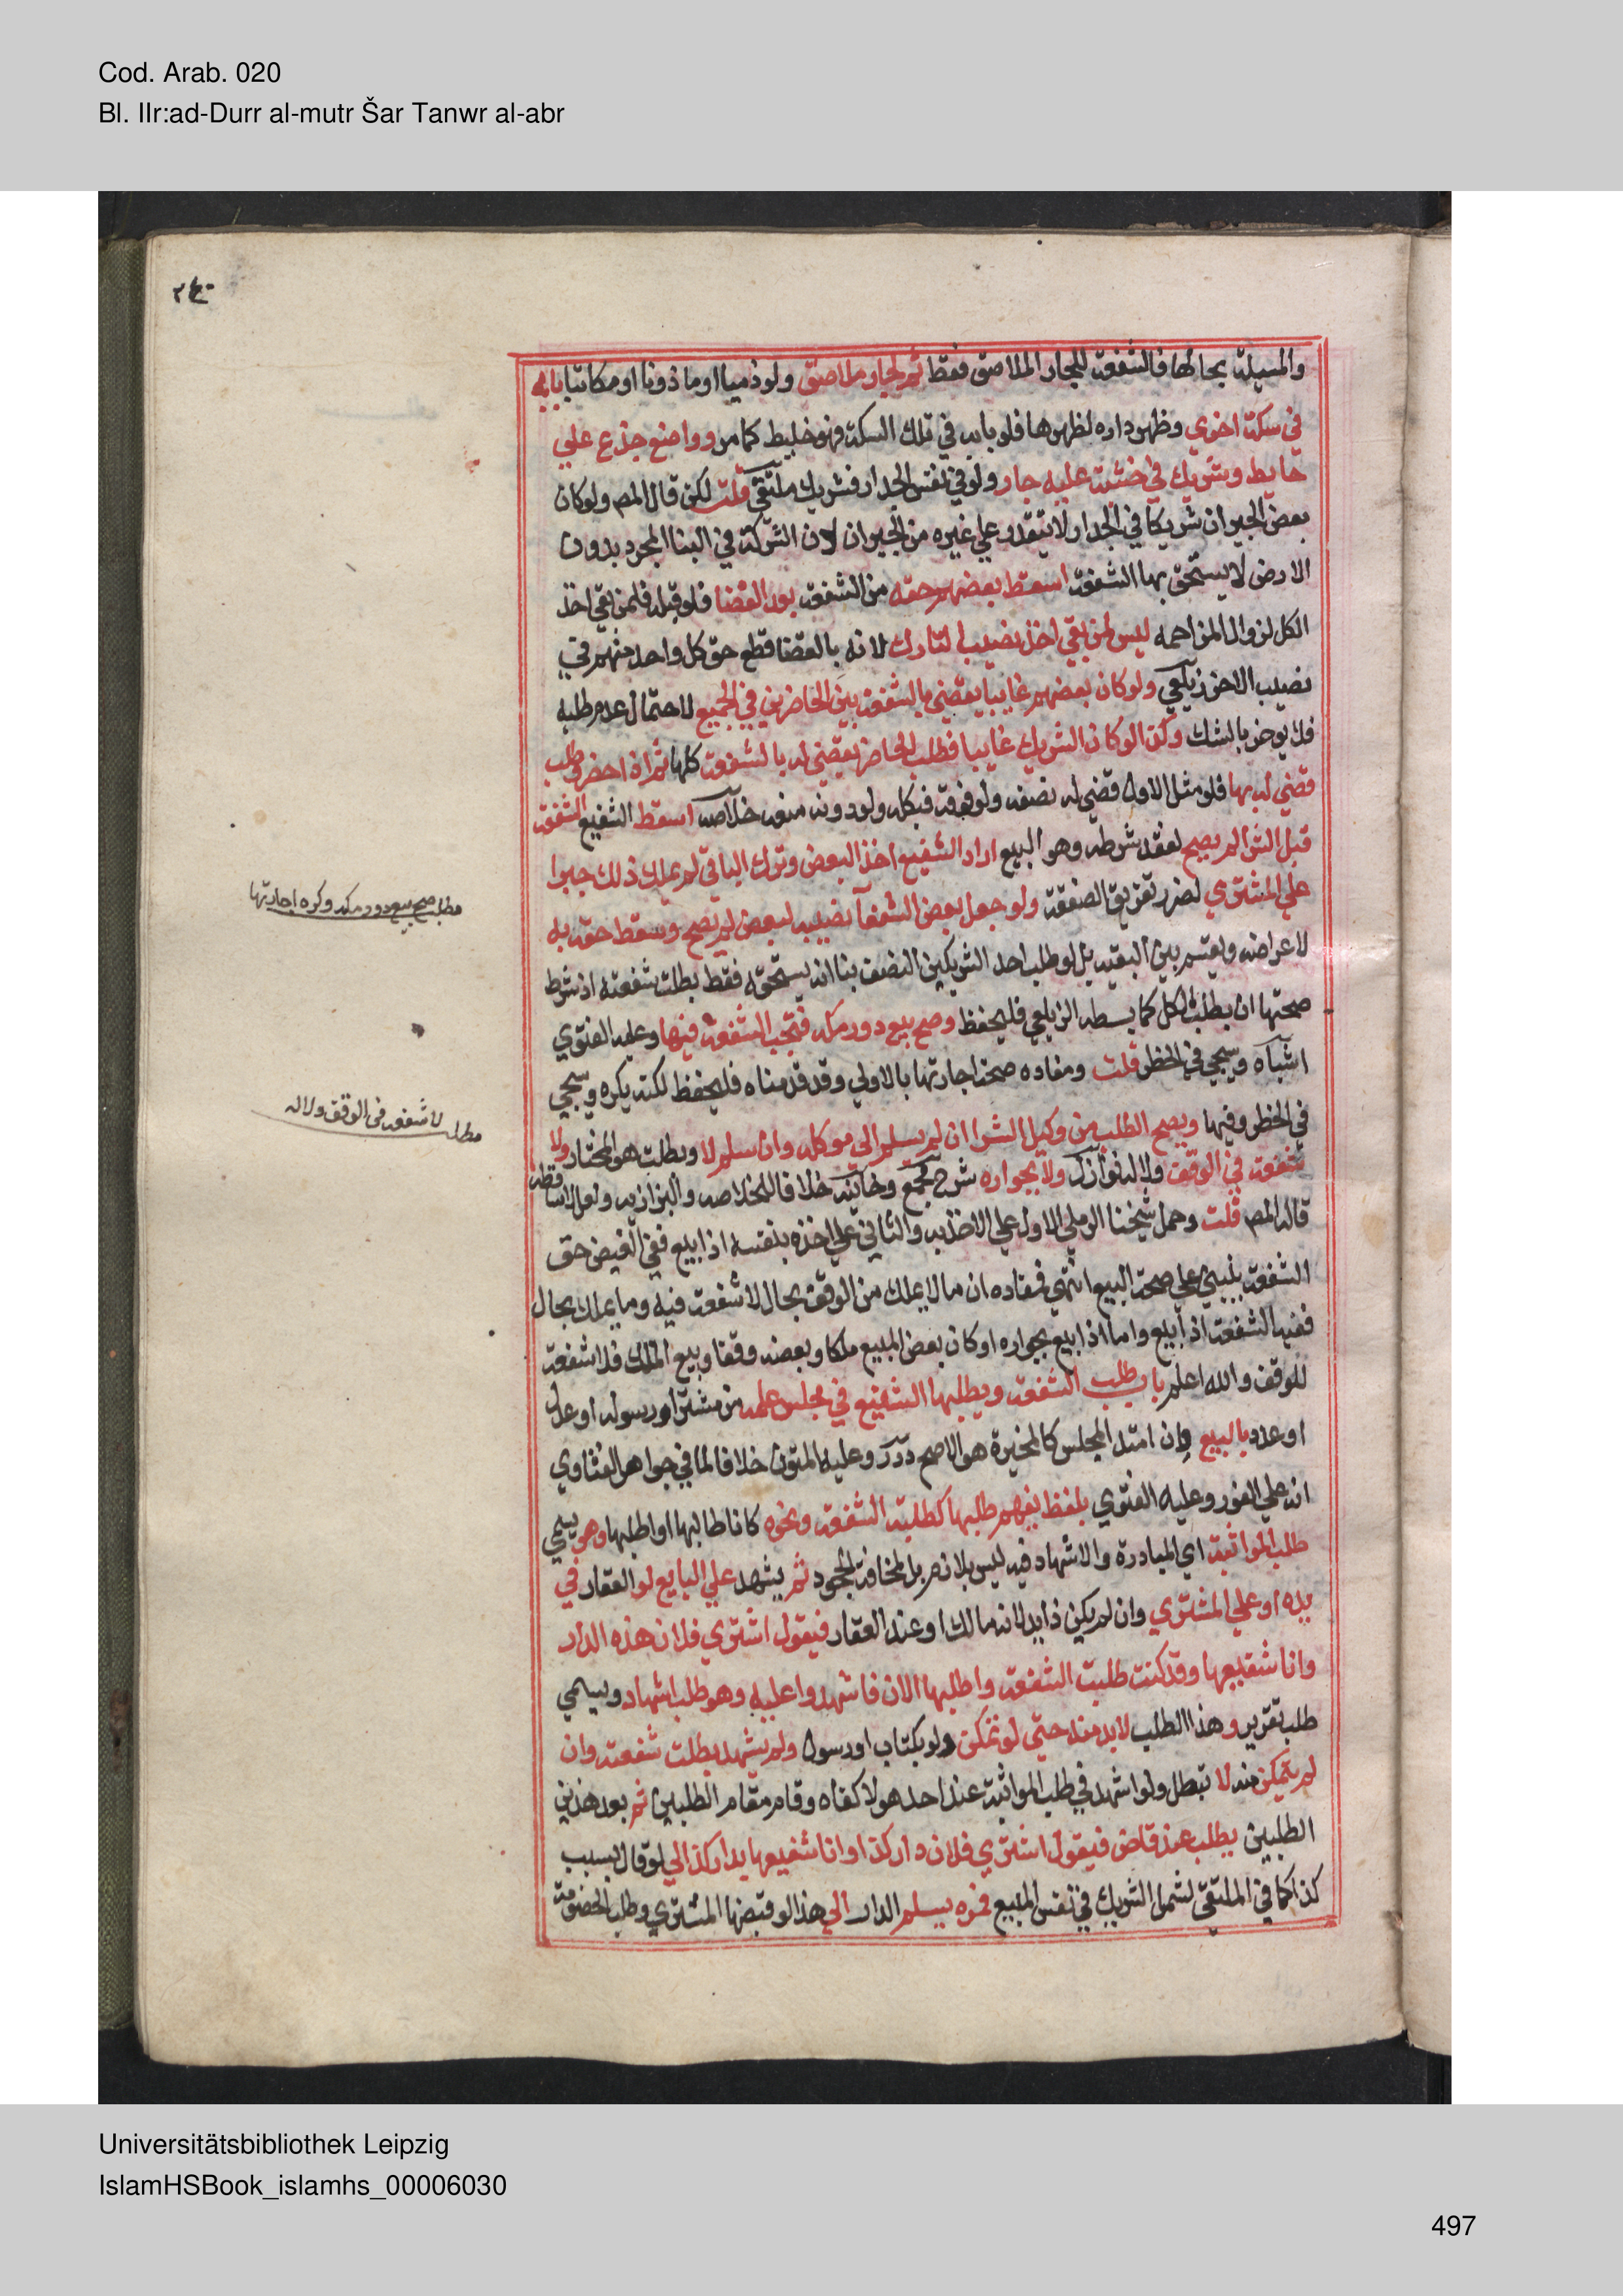 Cod. Arab. 020
Bl. IIr:ad-Durr al-mutr Šar Tanwr al-abr
٢٤٠
والمسيلة بحالها فالشفعة للجار الملاصق فقط ثم لجار ملاصق ولو ذميا او ماذونا او مكاتبا بابه
في سكة اخري وظهر داره لظهرها فلو بابه في تلك السكة فهو خليط كما مر وواضع جذع علي
حايط وشريك في خشبة عليه جار ولو في نفس الجدار فشريك ملتقي قلت لكن قال المص ولو كان
بعض الجيران شريكا في الجدار لا يتقدم علي غيره من الجيران لان الشركة في البنا المجرد بدون
الارض لا يستحق بها الشفعة اسقط بعضهم حقه من الشفعة بعد القضا فلو قبله فلمن بقي اخذ
الكل لزوال المزاحمه ليس لمن بقي اخذ نصيب التارك لانه بالقضا قطع حق كل واحد منهم في
نصيب الاخر زيلعي ولو كان بعضهم غايبا يقضي بالشفعة بين الحاضرين في الجميع لاحتمال عدم طلبه
فلا يوخر بالشك وكذا لو كان الشريك غايبا فطلب الحاضر يقضي له بالشفعة كلها ثم اذا حضر وطلب
قضي له بها فلو مثل الاول قضي له نصفه ولو فوقه فبكله ولو دونه منعه خلاصه اسقط الشفيع الشفعة
قبل الشرا لم يصح لفقد شرطه وهو البيع اراد الشفيع اخذ البعض وترك الباقي لم يملك ذلك جبرا
علي المشتري لضرر تفريق الصفقة ولو جعل بعض الشفعآ نصيبه لبعض لم يصح وسقط حقه به
لاعراضه ويقسم بين البقيه بل لو طلب احد الشريكين النصف بنا انه يستحقه فقط بطلت شفعته اذ شرط
صحتها ان يطلب الكل كما بسطه الزيلعي فليحفظ وصح بيع دور مكه فتجب الشفعة فيها وعليه الفتوي
اشباه وسيجي في الحظر قلت ومفاده صحة اجارتها بالاولي وقد قدمناه فليحفظ لكنه يكره وسيجي
في الحظر وفيها ويصح الطلب من وكيل الشرا ان لم يسلم الي موكله وان سلم لا وبطلت هو المختار ولا
شفعة في الوقف ولا له نوازل ولا بجواره شرح مجمع وخانيه خلافا للخلاصه والبزازيه ولعل لا ساقطه
قاله المص قلت وحمل شيخنا الرملي الاول علي الاخذ به والثاني علي اخذه بنفسه اذا بيع ففي الفيض حق
الشفعة يبتني علي صحة البيع انتهي فمفاده ان ما لا يملك من الوقف بحال لا شفعة فيه وما يملك بحال
ففيه الشفعة اذا بيع واما اذا بيع بجواره او كان بعض المبيع ملكا وبعضه وقفا وبيع الملك فلا شفعة
للوقف والله اعلم باب طلب الشفعة ويطلبها الشفيع في مجلس علمه من مشتر او رسوله او عدل
او عدد بالبيع وان امتد المجلس كالمخيرة هو الاصح درر وعليه المتون خلافا لما في جواهر الفتاوي
انه علي الفور وعليه الفتوي بلفظ يفهم طلبها كطلبت الشفعة ونحوه كانا طالبها او اطلبها وهو يسمي
طلب المواثبة اي المبادرة والاشهاد فيه ليس بلازم بل لمخافة الجحود ثم يشهد علي البايع لو العقار في
يده او علي المشتري وان لم يكن ذا يد لانه مالك او عند العقار فيقول اشتري فلان هذه الدار
وانا شفيعها وقد كنت طلبت الشفعة واطلبها الان فاشهدوا عليه وهو طلب اشهاد ويسمي
طلب تقرير وهذا الطلب لابد منه حتي لو تمكن ولو بكتاب او رسول ولم يشهد بطلت شفعته وان
لم يتمكن منه لا تبطل ولو اشهد في طلب المواثبة عند احد هولا كفاه وقام مقام الطلبين ثم بعد هذين
الطلبين يطلب عند قاض فيقول اشتري فلان دار كذا وانا شفيعها بدار كذا لي لو قال بسبب
كذا كما في الملتقي لشمل الشريك في نفس المبيع فمره يسلم الدار الي هذا لو قبضها المشتري وطلب الخصومة
مطلب صح بيع دور مكه وكره اجارتها
مطلب لا شفعه في الوقف ولا له
Universitätsbibliothek Leipzig
IslamHSBook_islamhs_00006030
497